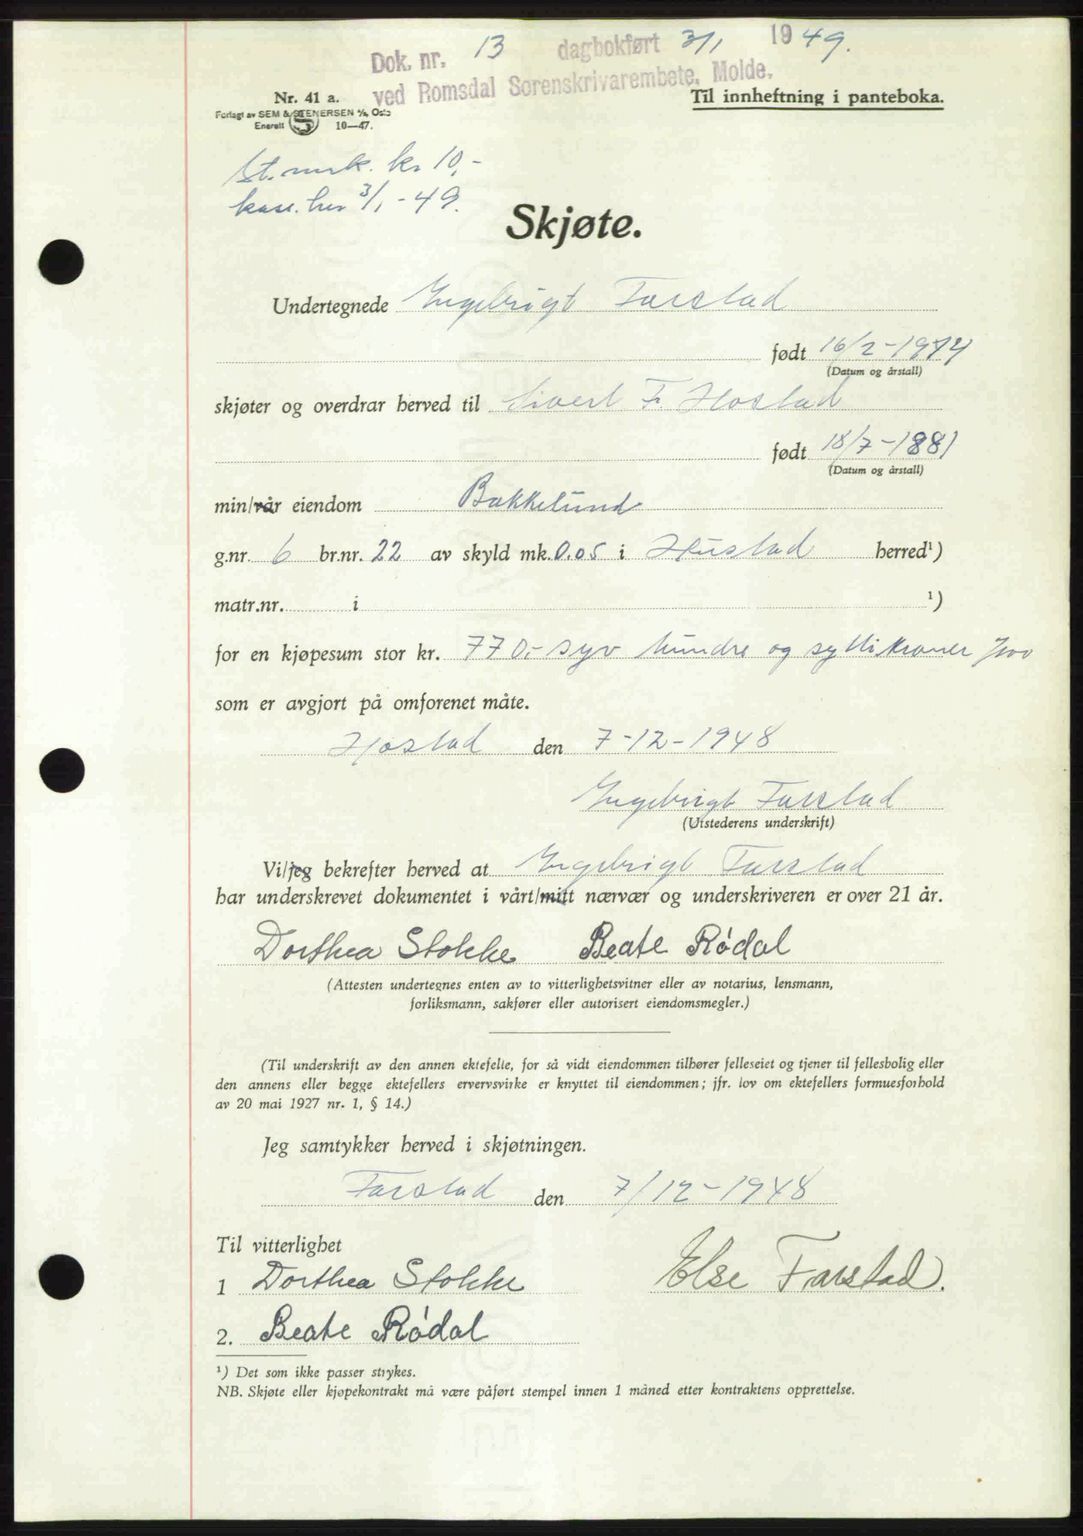 Dok. nr. 13 dagbokført 3/1 1949.
ved Romsdal Sorenskrivarembete, Molde.
Nr. 41 a.
Forlagt av SEM & STENERSEN A/S, Oslo
Enerett S 10—47.
Til innheftning i panteboka.
St. merk. kr 10,-
kass. her 3/1-49.
Skjøte.
Undertegnede Ingebrigt Farstad
født 16/2-1914
(Datum og årstall)
skjøter og overdrar herved til Sivert F. Hostad
født 18/7-1881
(Datum og årstall)
min/vår eiendom Bakkelund
g.nr. 6 br.nr. 22 av skyld mk. 0.05 i Hustad herred¹)
matr.nr. i ¹)
for en kjøpesum stor kr. 770,- syv hundre og sytti kroner
som er avgjort på omforenet måte.
Hostad den 7-12-1948
Ingebrigt Farstad
(Utstederens underskrift)
Vi/jeg bekrefter herved at Ingebrigt Farstad
har underskrevet dokumentet i vårt/mitt nærvær og underskriveren er over 21 år.
Dorthea Stokke Beate Rødal
(Attesten undertegnes enten av to vitterlighetsvitner eller av notarius, lensmann,
forliksmann, sakfører eller autorisert eiendomsmegler.)
(Til underskrift av den annen ektefelle, for så vidt eiendommen tilhører felleseiet og tjener til fellesbolig eller
den annens eller begge ektefellers ervervsvirke er knyttet til eiendommen; jfr. lov om ektefellers formuesforhold
av 20 mai 1927 nr. 1, § 14.)
Jeg samtykker herved i skjøtningen.
Farstad den 7/12-1948
Til vitterlighet
1 Dorthea Stokke Else Farstad.
2. Beate Rødal
¹) Det som ikke passer strykes.
NB. Skjøte eller kjøpekontrakt må være påført stempel innen 1 måned etter kontraktens opprettelse.